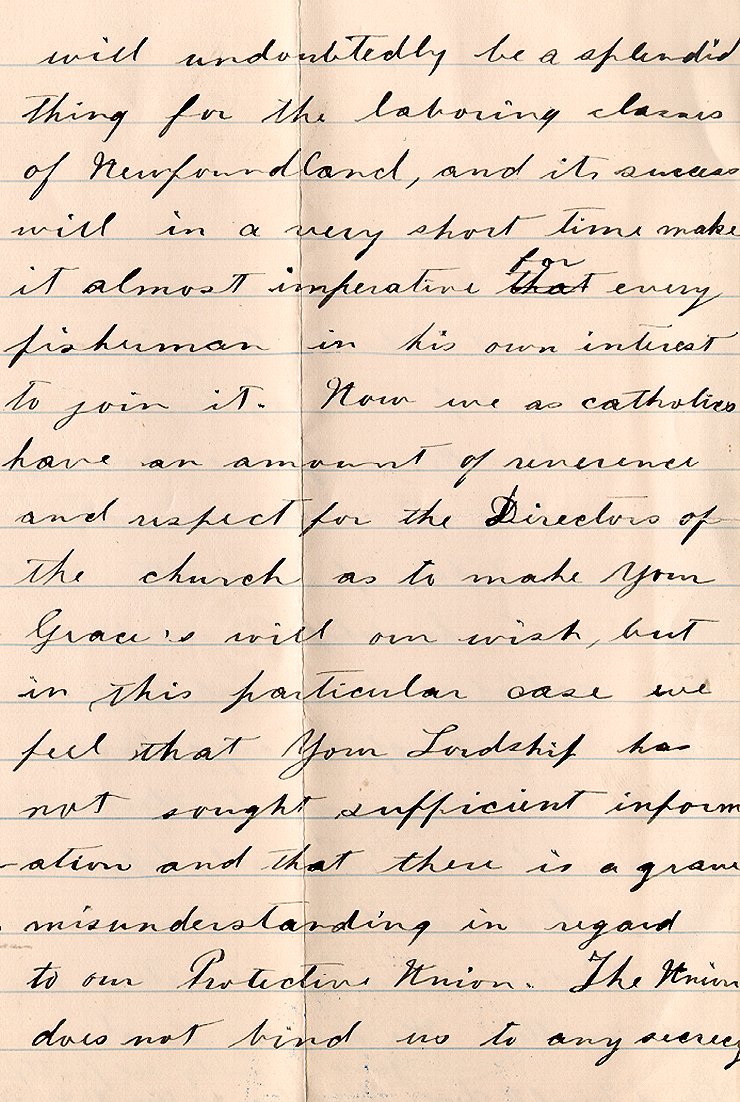 will undoubtedly be a splendid
thing for the laboring classes
of Newfoundland, and its success
will in a very short time make
for
it almost imperative that every
fisherman in his own interest
to join it. Now we as catholics
have an amount of reverence
and respect for the Directors of
the church as to make Your
Grace's will our wish, but
in this particular case we
feel that Your Lordship has
not sought sufficient inform
-ation and that there is a grave
misunderstanding in regard
to our Protective Union. The Union
does not bind us to any secrecy